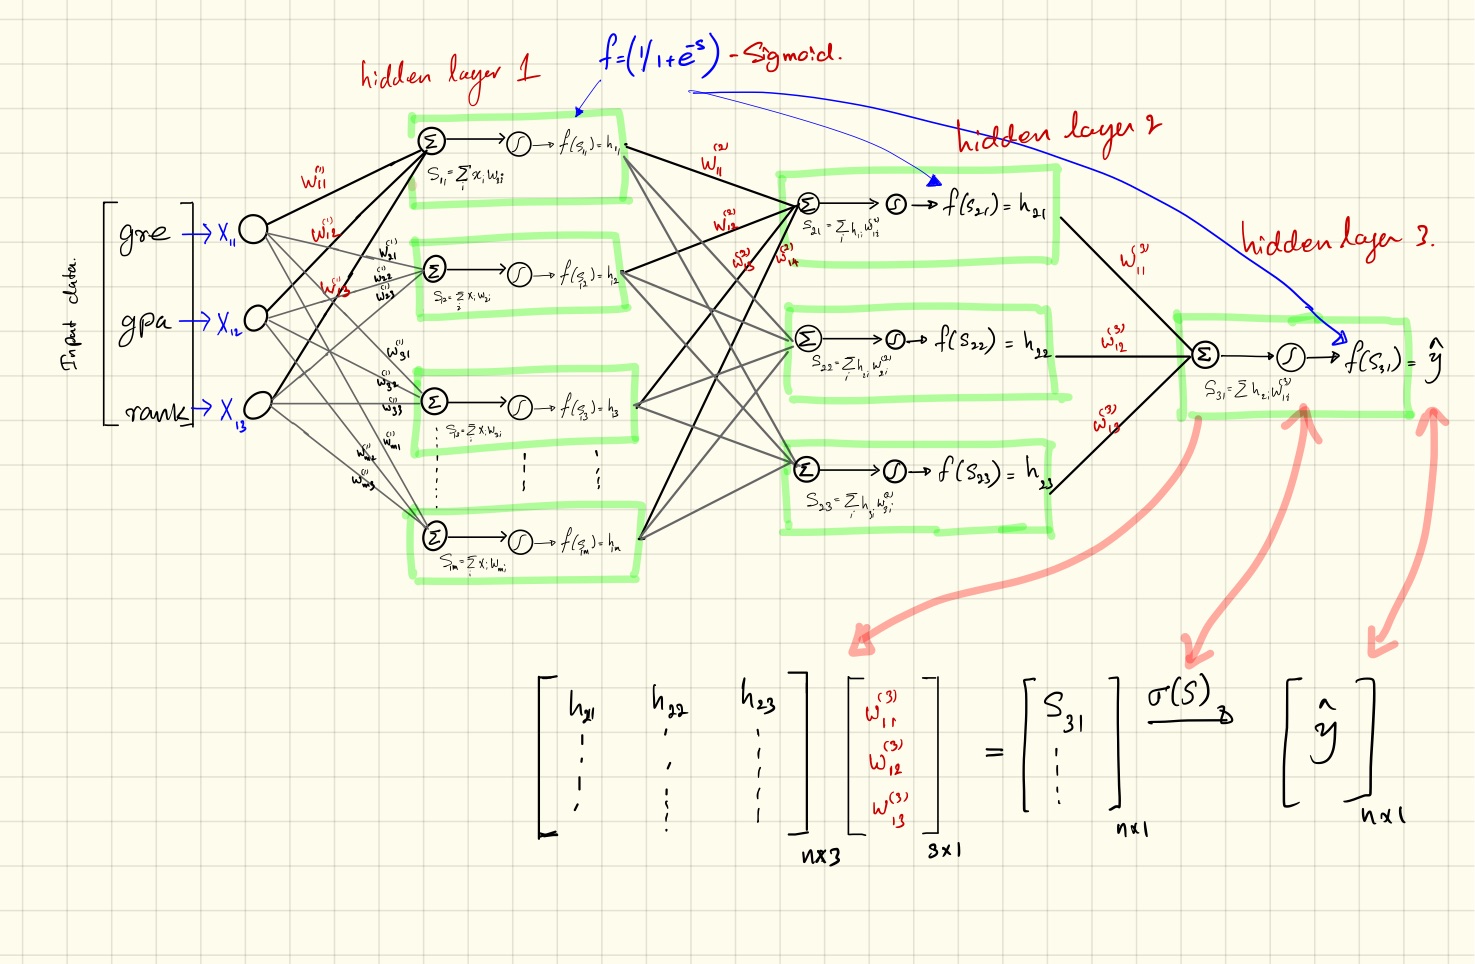 f=(1/1+e^-s) - Sigmoid.
hidden layer 1
hidden layer 2
hidden layer 3.
Input data.
gre → X₁₁
gpa → X₁₂
rank → X₁₃
W₁₁⁽¹⁾
W₁₂⁽¹⁾
W₁₃⁽¹⁾
W₂₁⁽¹⁾
W₂₂⁽¹⁾
W₂₃
W₃₁⁽¹⁾
W₃₂⁽¹⁾
W₃₃⁽¹⁾
Wm₁⁽¹⁾
Wm₂⁽¹⁾
Wm₃⁽¹⁾
Σ → ∫ → f(S₁₁) = h₁₁
S₁₁ = Σᵢ xᵢ w₁ᵢ
Σ → ∫ → f(S₁₂) = h₁₂
S₁₂ = Σ xᵢ w₂ᵢ
Σ → ∫ → f(S₁₃) = h₃
S₁₃ = Σ xᵢ w₃ᵢ
Σ → ∫ → f(S₁m) = h₁m
S₁m = Σ xᵢ wmᵢ
W₁₁⁽²⁾
W₁₂⁽²⁾
W₁₃⁽²⁾
W₁₄⁽²⁾
Σ → ∫ → f(S₂₁) = h₂₁
S₂₁ = Σᵢ h₁ᵢ W₁ᵢ⁽²⁾
Σ → ∫ → f(S₂₂) = h₂₂
S₂₂ = Σᵢ h₂ᵢ W₂ᵢ⁽²⁾
Σ → ∫ → f(S₂₃) = h₂₃
S₂₃ = Σᵢ h₃ᵢ W₃ᵢ⁽²⁾
W₁₁⁽³⁾
W₁₂⁽³⁾
W₁₃⁽³⁾
Σ → ∫ → f(S₃₁) = ŷ
S₃₁ = Σ h₂ᵢ W₁ᵢ⁽³⁾
h₂₁ h₂₂ h₂₃
n×3
W₁₁⁽³⁾
W₁₂⁽³⁾
W₁₃⁽³⁾
3×1
=
S₃₁
n×1
σ(S)
ŷ
n×1